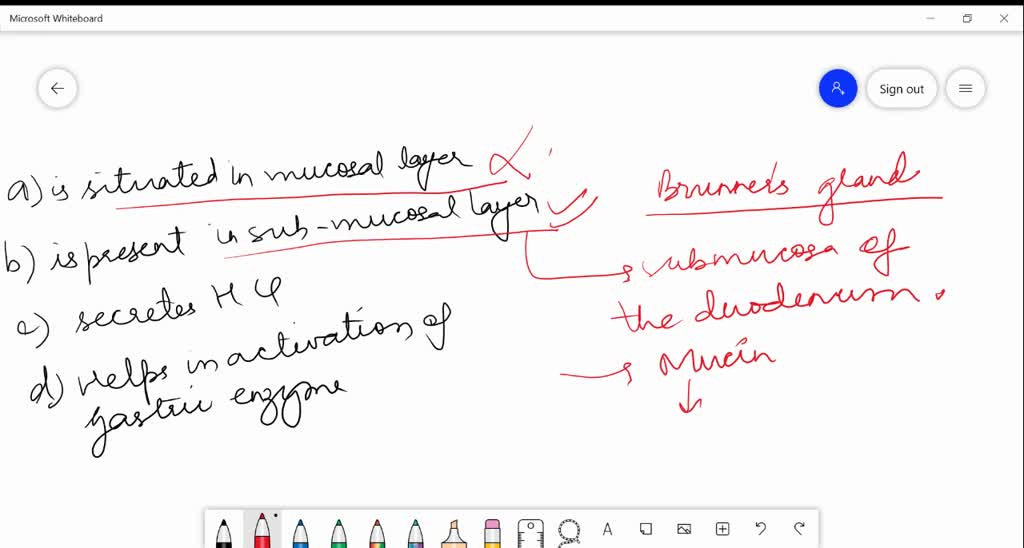 Microsoft Whiteboard
Sign out
a) is situated in mucosal layer
b) is present in sub-mucosal layer
c) secretes HCl
d) Helps in activation of
gastric enzyme
Brunner's gland
submucosa of
the duodenum.
Mucin
A